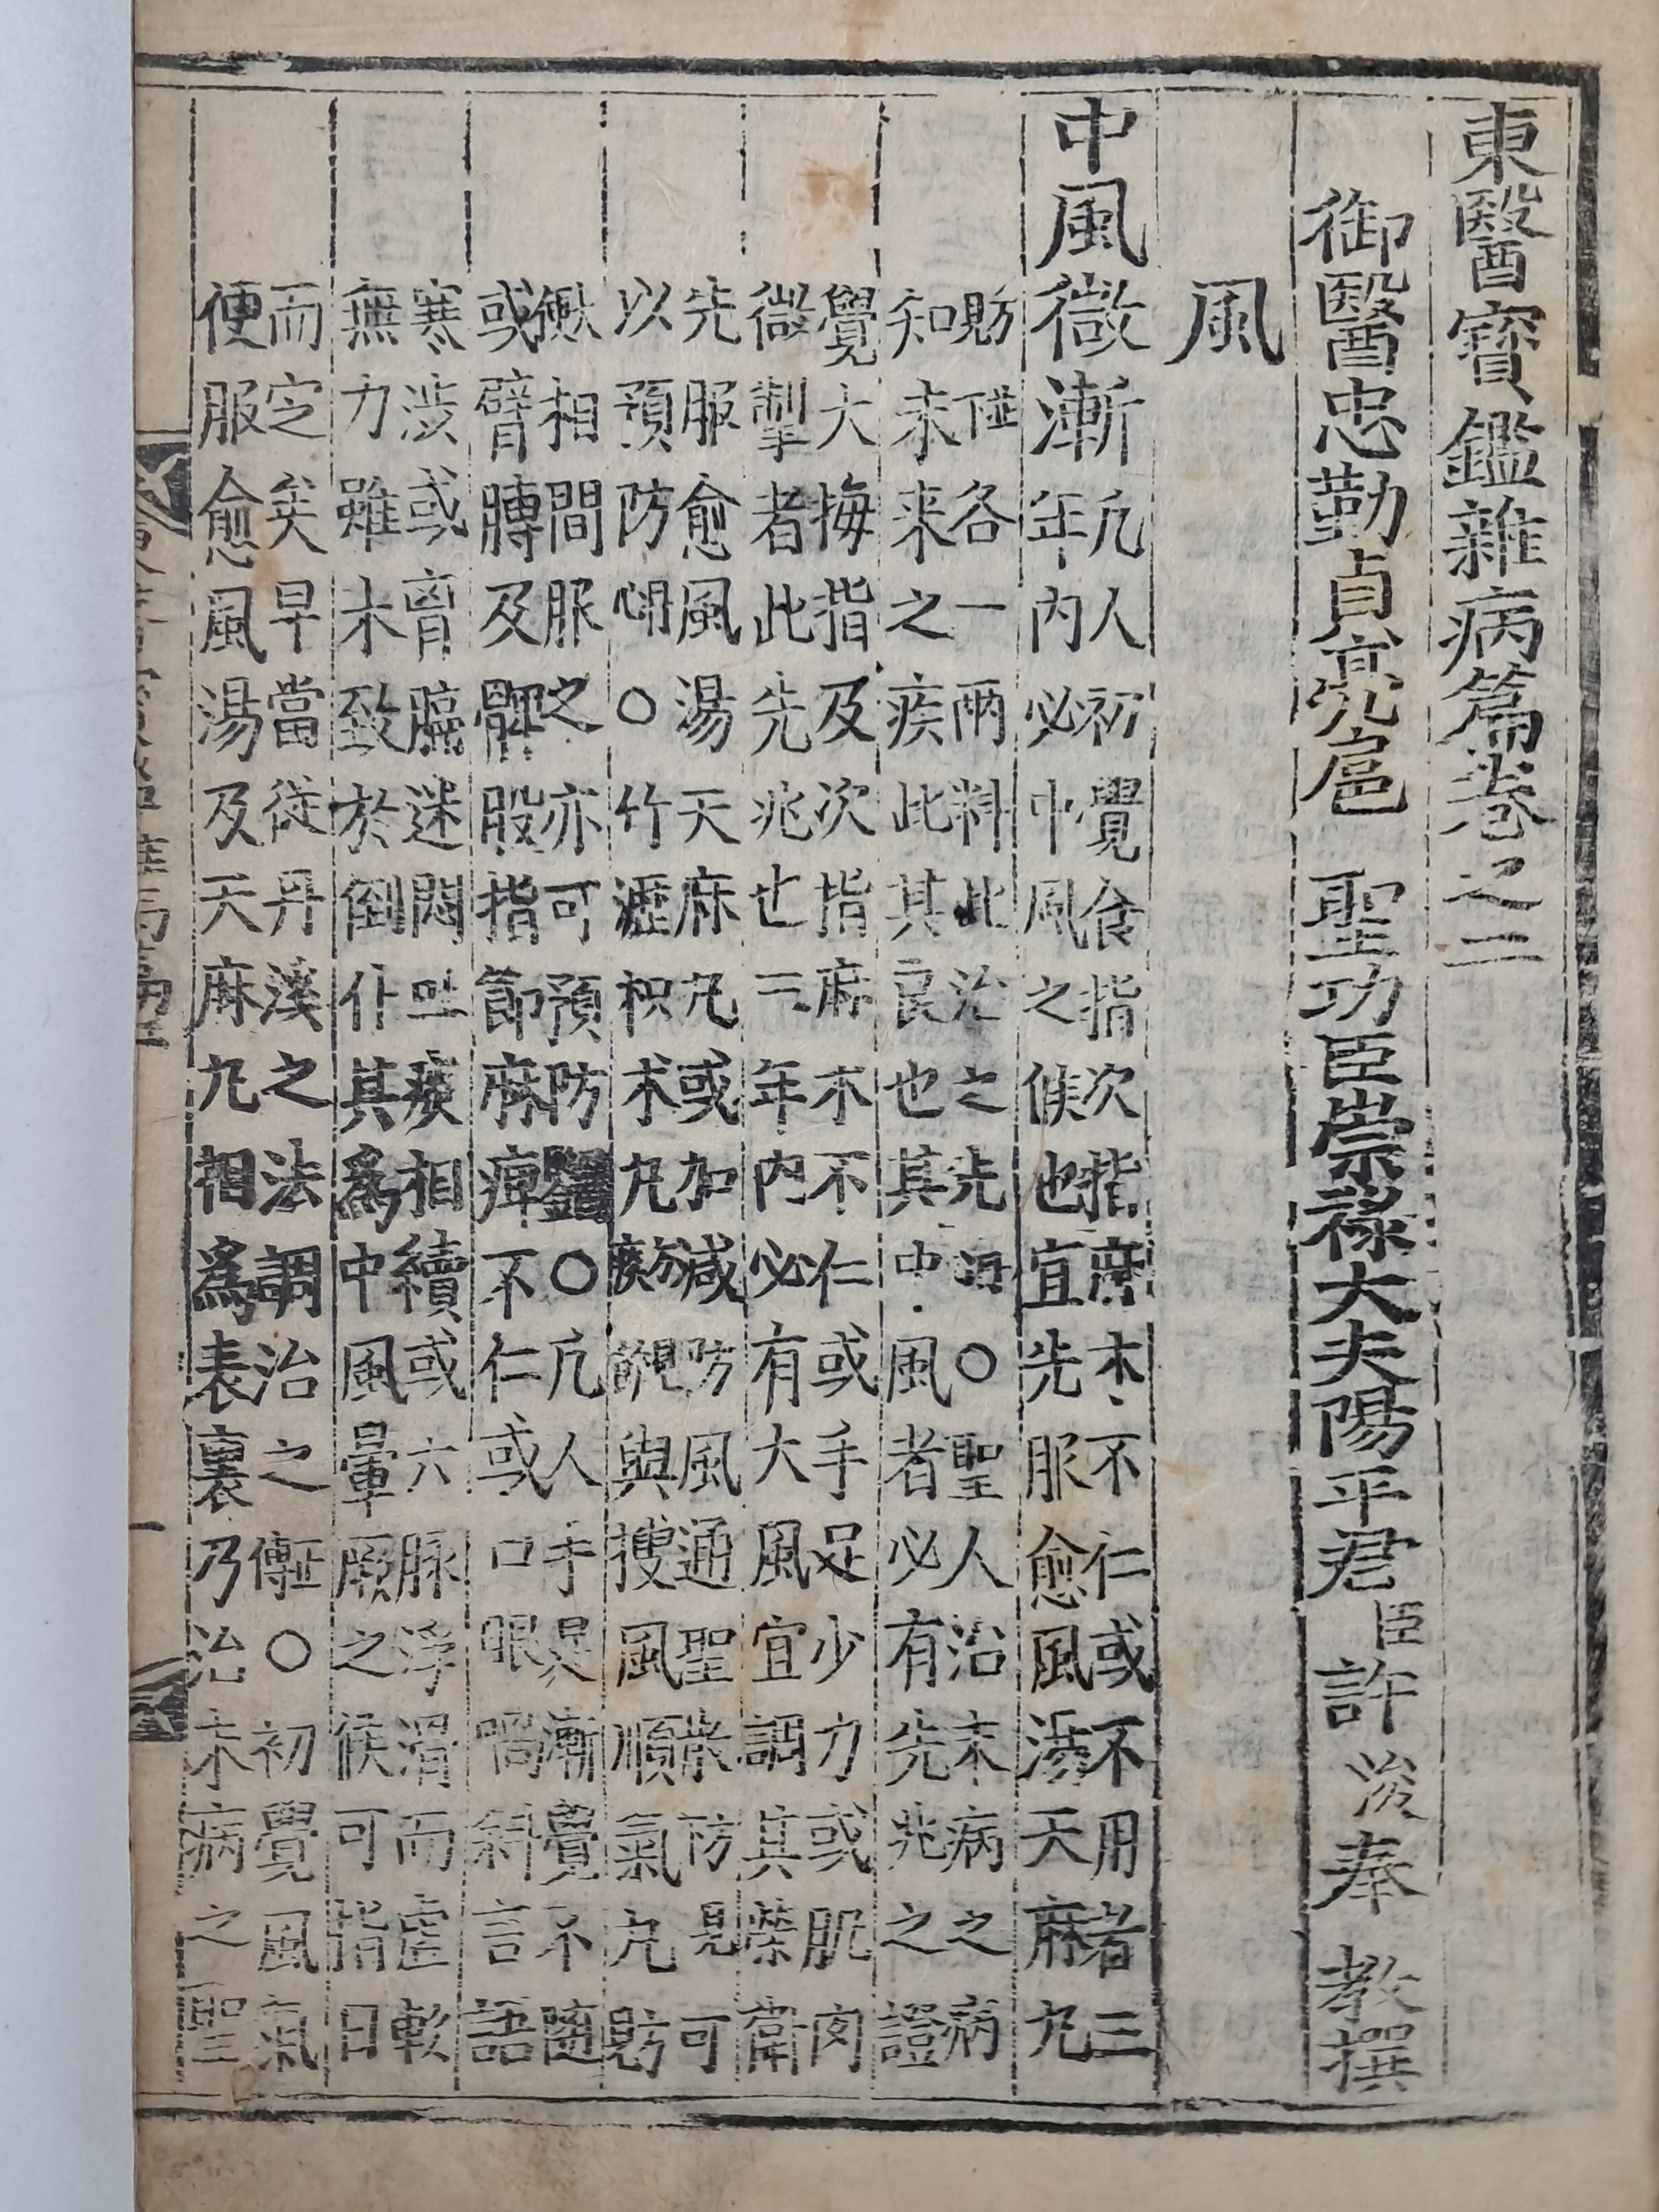 東醫寶鑑雜病篇卷之二
御醫忠勤貞亮扈 聖功臣崇祿大夫陽平君臣許浚奉 教撰
風
中風微漸
凡人初覺食指次指麻木不仁或不用者三
年內必中風之候也宜先服愈風湯天麻丸
方見下並各一兩料此治之先海〇聖人治未病之病
知未來之疾此其良也其中風者必有先兆之證
覺大拇指及次指麻木不仁或手足少力或肌肉
微掣者此先兆也三年內必有大風宜調其榮衛
先服愈風湯天麻丸或加減防風通聖散可
以預防〇竹瀝枳朮丸與搜風順氣丸方見
相間服之亦可預防〇凡人手足漸覺不隨
或臂膊及髀股指節麻痺不仁或口眼喎斜言語
寒澁或胷膈迷悶吐痰相續或六脉浮滑而虛軟
無力雖未致於倒仆其爲中風暈厥之候可指日
而定矣早當從丹溪之法調治之〇初覺風氣
便服愈風湯及天麻丸相爲表裏乃治未病之聖
一